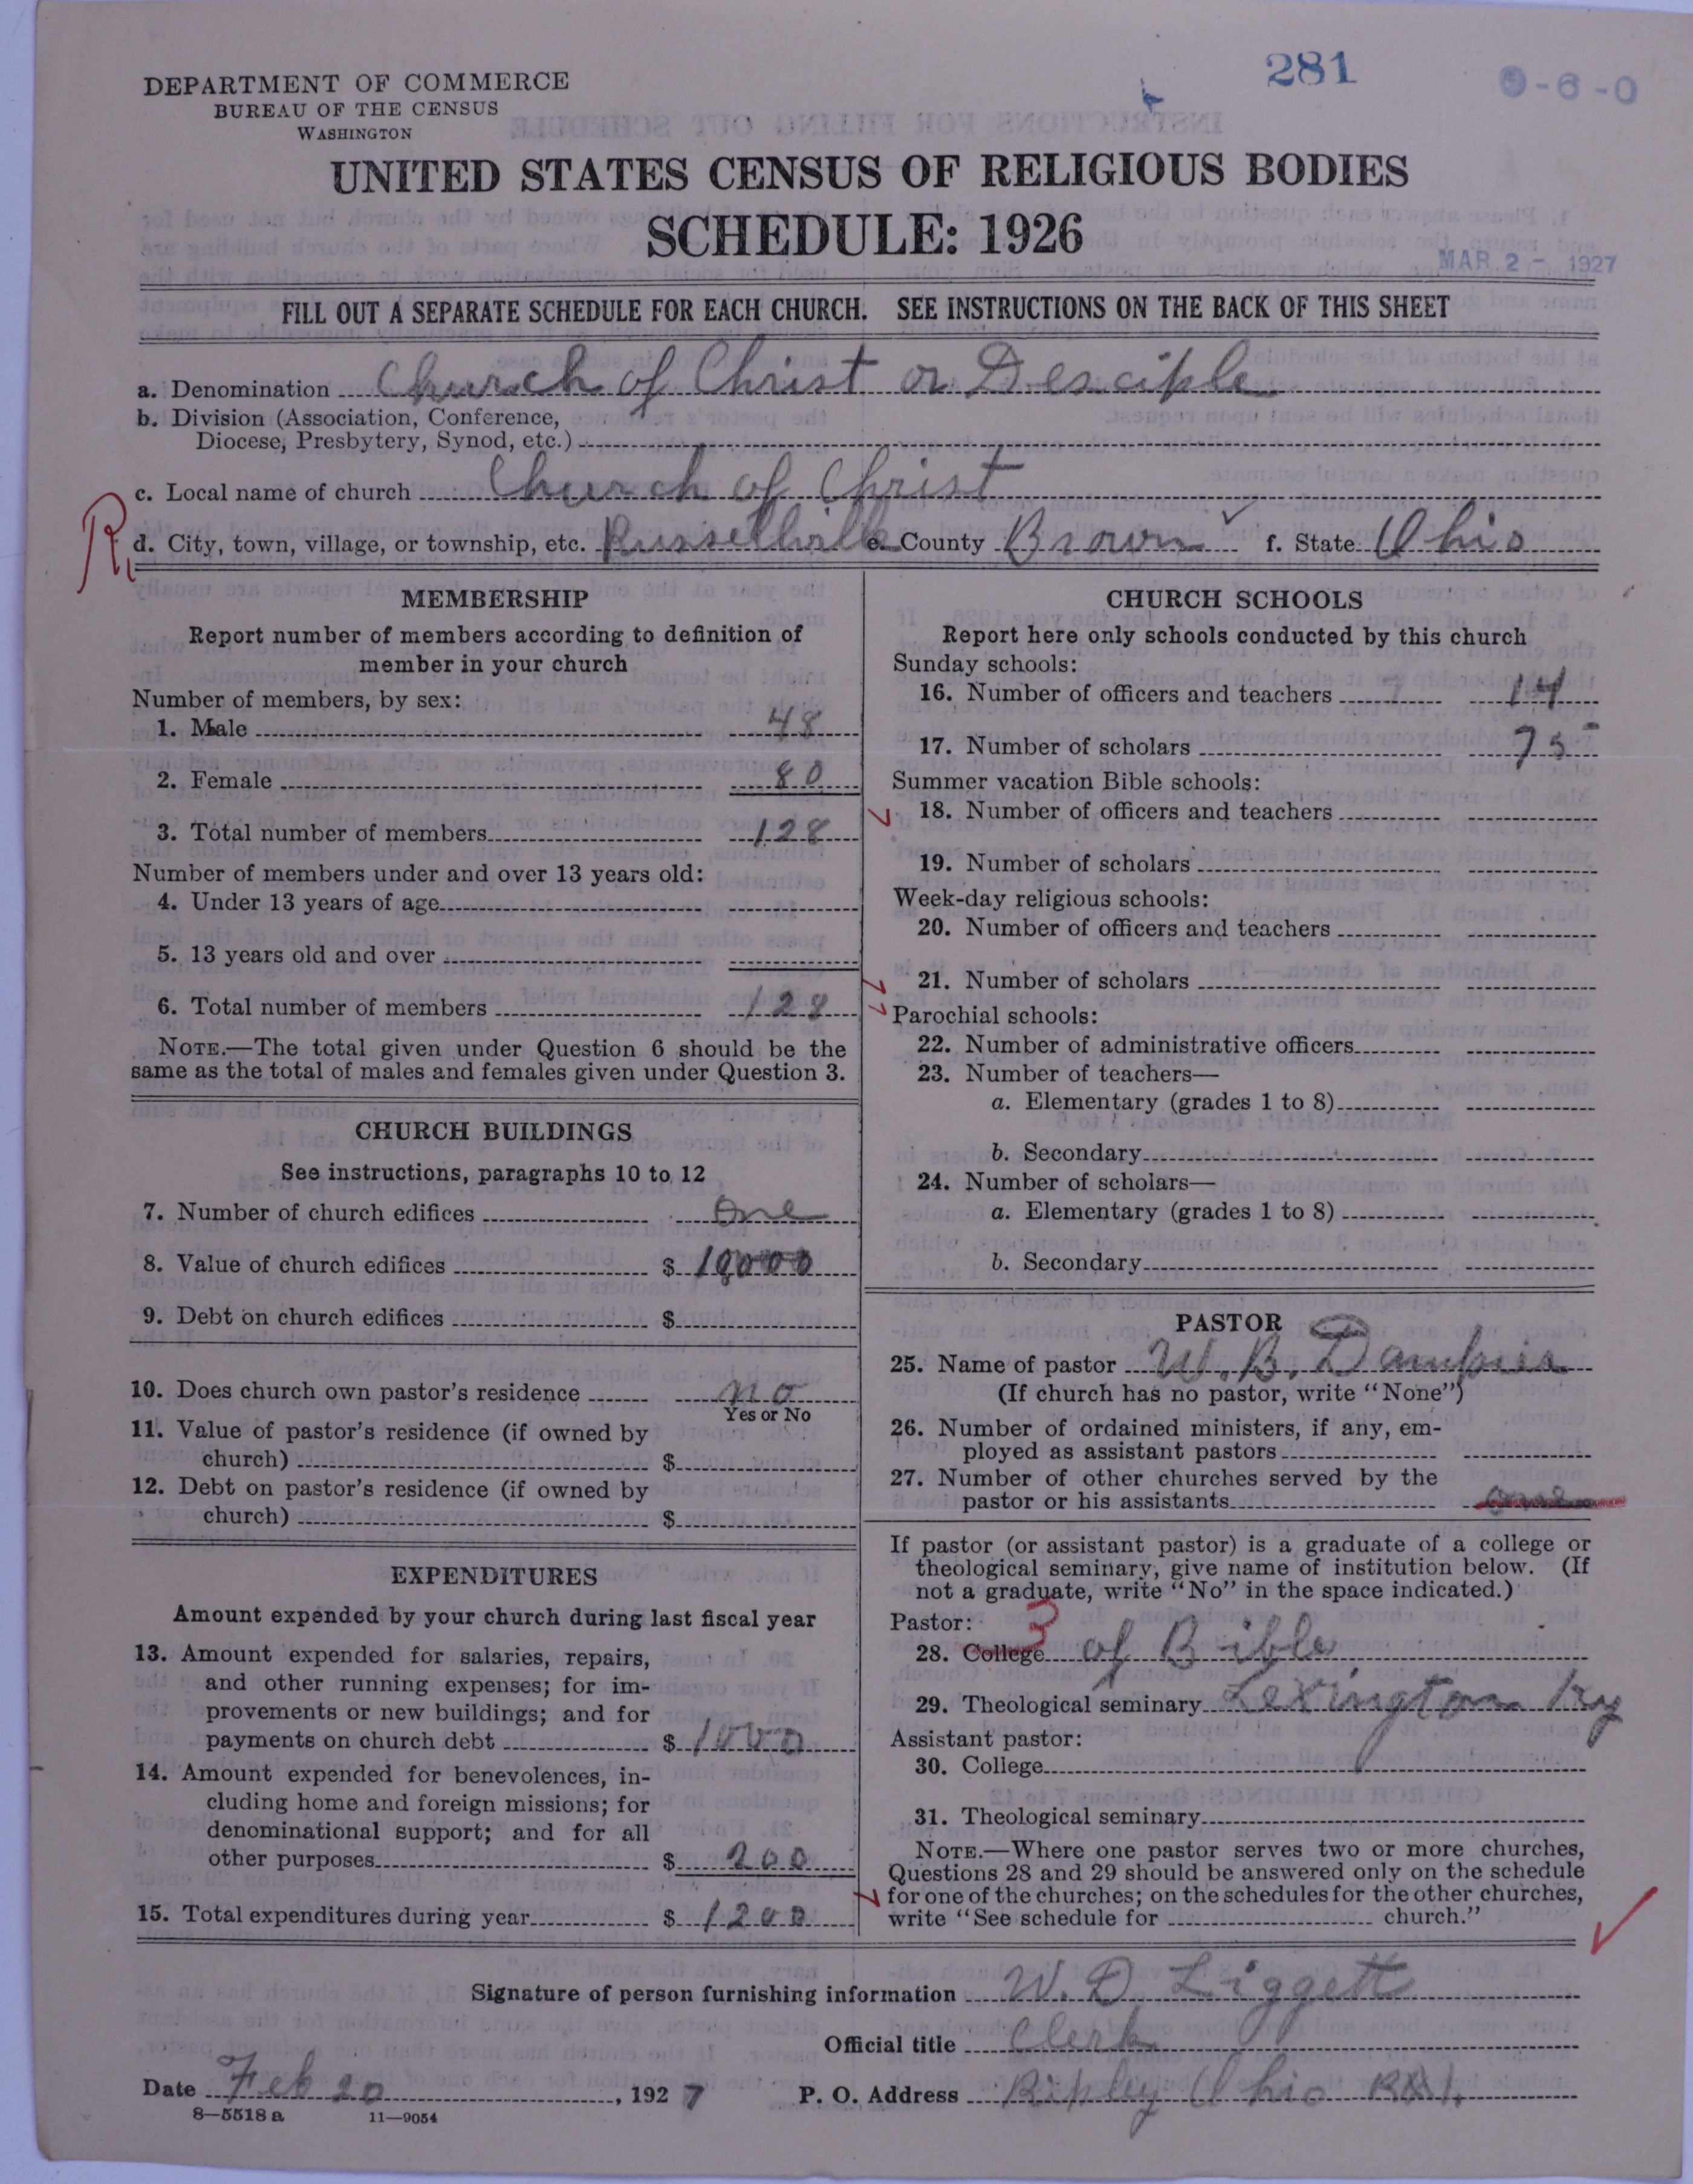 281
9-6-0
DEPARTMENT OF COMMERCE
BUREAU OF THE CENSUS
WASHINGTON
UNITED STATES CENSUS OF RELIGIOUS BODIES
SCHEDULE: 1926
MAR 2 - 1927
FILL OUT A SEPARATE SCHEDULE FOR EACH CHURCH. SEE INSTRUCTIONS ON THE BACK OF THIS SHEET
a. Denomination Church of Christ or Desciple
b. Division (Association, Conference,
Diocese, Presbytery, Synod, etc.)
c. Local name of church Church of Christ
d. City, town, village, or township, etc. Russellville e. County Brown f. State Ohio
MEMBERSHIP
Report number of members according to definition of
member in your church
Number of members, by sex:
1. Male 48
2. Female 80
3. Total number of members 128
Number of members under and over 13 years old:
4. Under 13 years of age
5. 13 years old and over
6. Total number of members 128
NOTE.—The total given under Question 6 should be the
same as the total of males and females given under Question 3.
CHURCH BUILDINGS
See instructions, paragraphs 10 to 12
7. Number of church edifices One
8. Value of church edifices $ 10000
9. Debt on church edifices $
10. Does church own pastor's residence no
Yes or No
11. Value of pastor's residence (if owned by
church) $
12. Debt on pastor's residence (if owned by
church) $
EXPENDITURES
Amount expended by your church during last fiscal year
13. Amount expended for salaries, repairs,
and other running expenses; for im-
provements or new buildings; and for
payments on church debt $ 1000
14. Amount expended for benevolences, in-
cluding home and foreign missions; for
denominational support; and for all
other purposes $ 200
15. Total expenditures during year $ 1200
CHURCH SCHOOLS
Report here only schools conducted by this church
Sunday schools:
16. Number of officers and teachers 14
17. Number of scholars 75
Summer vacation Bible schools:
18. Number of officers and teachers
19. Number of scholars
Week-day religious schools:
20. Number of officers and teachers
21. Number of scholars
Parochial schools:
22. Number of administrative officers
23. Number of teachers—
a. Elementary (grades 1 to 8)
b. Secondary
24. Number of scholars—
a. Elementary (grades 1 to 8)
b. Secondary
PASTOR
25. Name of pastor W. B.
(If church has no pastor, write "None")
26. Number of ordained ministers, if any, em-
ployed as assistant pastors
27. Number of other churches served by the
pastor or his assistants one
If pastor (or assistant pastor) is a graduate of a college or
theological seminary, give name of institution below. (If
not a graduate, write "No" in the space indicated.)
Pastor: 3
28. College of Bible
29. Theological seminary Lexington Ky
Assistant pastor:
30. College
31. Theological seminary
NOTE.—Where one pastor serves two or more churches,
Questions 28 and 29 should be answered only on the schedule
for one of the churches; on the schedules for the other churches,
write "See schedule for church."
Signature of person furnishing information W. D. Liggett
Official title Clerk
Date Feb 20, 1927 P. O. Address Ripley Ohio
8—5518 a 11—9054